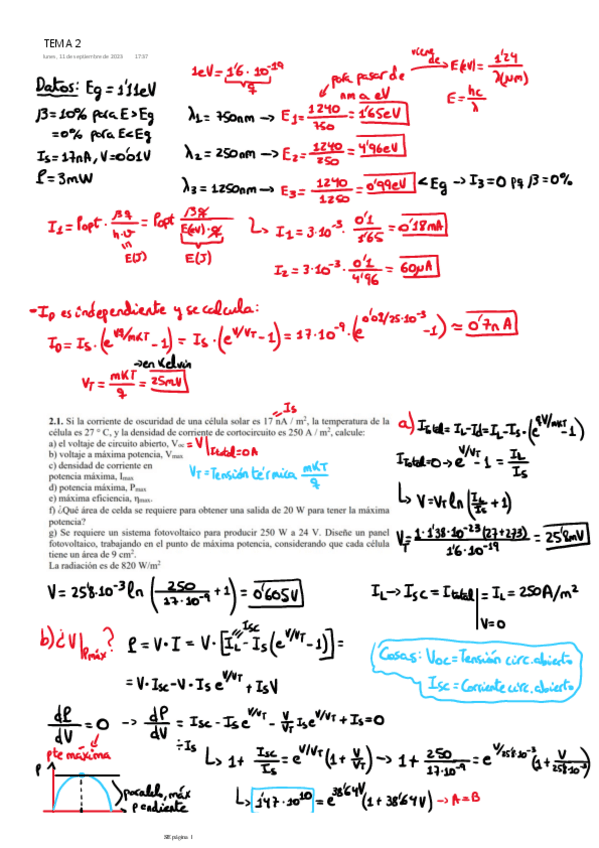 TEMA 2
lunes, 11 de septiembre de 2023 17:37
Datos: Eg = 1'11eV
β=10% para E>Eg
=0% para E<Eg
Is=17nA, V=0'01V
P=3mW
1eV = 1'6·10⁻¹⁹
q
para pasar de
nm a eV
viene
de
E(eV) = 1'24/λ(μm)
E = hc/λ
λ1 = 750nm → E1 = 1240/750 = 1'65eV
λ2 = 250nm → E2 = 1240/250 = 4'96eV
λ3 = 1250nm → E3 = 1240/1250 = 0'99eV < Eg → I3=0 pq β=0%
I1 = Popt · βq/h·ν = Popt βq/E(eV)·q
E(J)
E(J)
↳ I1 = 3·10⁻³ · 0'1/1'65 = 0'18mA
I2 = 3·10⁻³ · 0'1/4'96 = 60μA
- ID es independiente y se calcula:
ID = Is·(e^(qV/mKT) -1) = Is·(e^(V/VT) -1) = 17·10⁻⁹·(e^(0'01/25·10⁻³) -1) ≈ 0'7nA
→en Kelvin
VT = mKT/q = 25mV
2.1. Si la corriente de oscuridad de una célula solar es 17 nA / m², la temperatura de la
célula es 27 ° C, y la densidad de corriente de cortocircuito es 250 A / m², calcule:
a) el voltaje de circuito abierto, Voc
b) voltaje a máxima potencia, Vmax
c) densidad de corriente en
potencia máxima, Imax
d) potencia máxima, Pmax
e) máxima eficiencia, ηmax.
f) ¿Qué área de celda se requiere para obtener una salida de 20 W para tener la máxima
potencia?
g) Se requiere un sistema fotovoltaico para producir 250 W a 24 V. Diseñe un panel
fotovoltaico, trabajando en el punto de máxima potencia, considerando que cada célula
tiene un área de 9 cm².
La radiación es de 820 W/m²
Is
= V| Itotal=0A
VT = Tensión térmica mKT/q
a) Itotal = IL-Id = IL-Is·(e^(qV/mKT) -1)
Itotal=0 → e^(V/VT) -1 = IL/Is
↳ V=VT ln(IL/Is +1)
VT = 1·1'38·10⁻²³(27+273)/1'6·10⁻¹⁹ = 25'8mV
V = 25'8·10⁻³ ln(250/17·10⁻⁹ +1) = 0'605V
IL → Isc = Itotal|V=0 = IL = 250A/m²
b) ¿V|Pmáx?
Isc
P = V·I = V·[IL - Is(e^(V/VT) -1)] =
= V·Isc - V·Is e^(V/VT) + IsV
Cosas: Voc = Tensión circ. abierto
Isc = Corriente circ. abierto
dP/dV = 0 → dP/dV = Isc - Is e^(V/VT) - V/VT Is e^(V/VT) + Is = 0
pte máxima
÷Is
↳ 1+ Isc/Is = e^(V/VT)(1+ V/VT) → 1+ 250/17·10⁻⁹ = e^(V/25'8·10⁻³)(1+ V/25'8·10⁻³)
P
paralela, máx
pendiente
↳ 1'47·10¹⁰ = e^(38'64V)(1+38'64V) → A=B
SE página 1